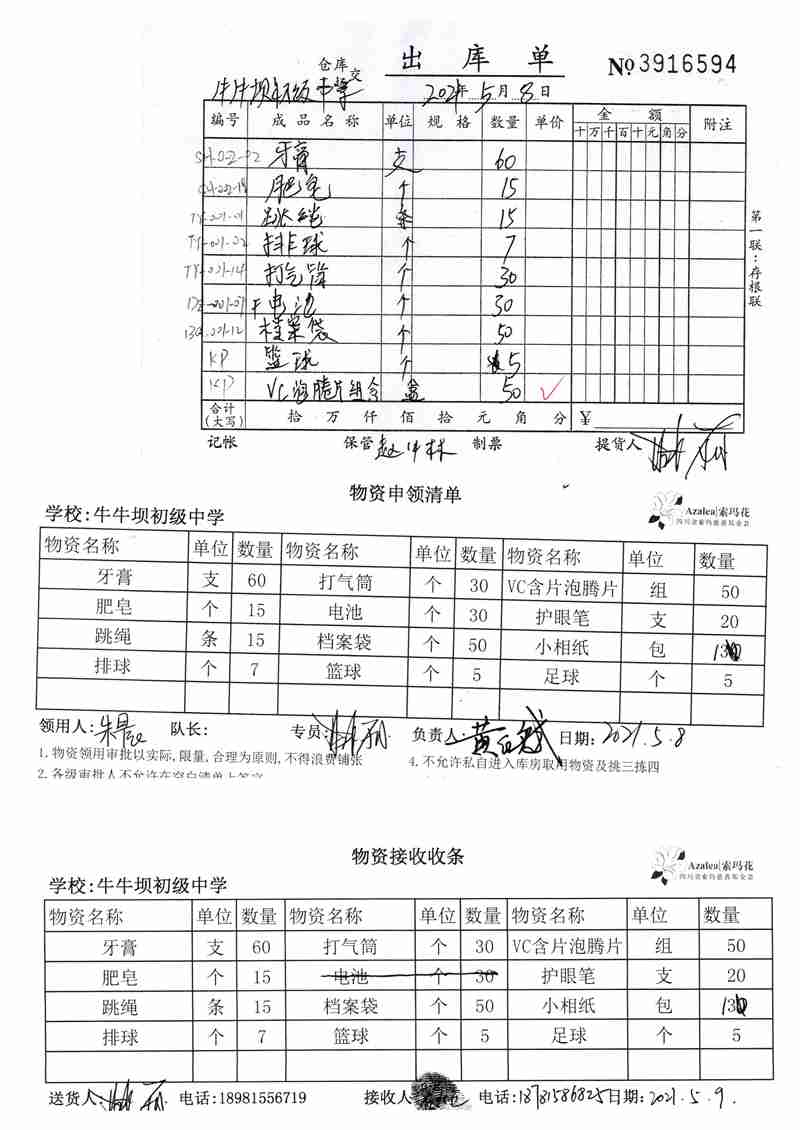 出 库 单
№ 3916594
仓库交
牛牛坝初级中学
2021年5月8日
编号 成品名称 单位 规格 数量 单价 金额 附注
十 万 千 百 十 元 角 分
SH-022-02 牙膏 支 60
肥皂 个 15
TY-001-01 跳绳 条 15
TY-001-02 排球 个 7
TY-001-14 打气筒 个 30
电池 个 30
档案袋 个 50
KP 篮球 个 5
KP VC泡腾片组合 盒 50 ✓
合计(大写) 拾 万 仟 佰 拾 元 角 分 ¥
记帐 保管 制票 提货人
第一联:存根联
物资申领清单
Azalea|索玛花
四川省索玛慈善基金会
学校:牛牛坝初级中学
物资名称 单位 数量 物资名称 单位 数量 物资名称 单位 数量
牙膏 支 60 打气筒 个 30 VC含片泡腾片 组 50
肥皂 个 15 电池 个 30 护眼笔 支 20
跳绳 条 15 档案袋 个 50 小相纸 包
排球 个 7 篮球 个 5 足球 个 5
领用人: 队长: 专员: 负责人: 日期: 2021.5.8
1.物资领用审批以实际,限量,合理为原则,不得浪费铺张 4.不允许私自进入库房取用物资及挑三拣四
2.各级审批人不允许在空白清单上签字
物资接收收条
Azalea|索玛花
四川省索玛慈善基金会
学校:牛牛坝初级中学
物资名称 单位 数量 物资名称 单位 数量 物资名称 单位 数量
牙膏 支 60 打气筒 个 30 VC含片泡腾片 组 50
肥皂 个 15 电池 个 30 护眼笔 支 20
跳绳 条 15 档案袋 个 50 小相纸 包
排球 个 7 篮球 个 5 足球 个 5
送货人: 电话:18981556719 接收人 电话:18781586825 日期: 2021.5.9.